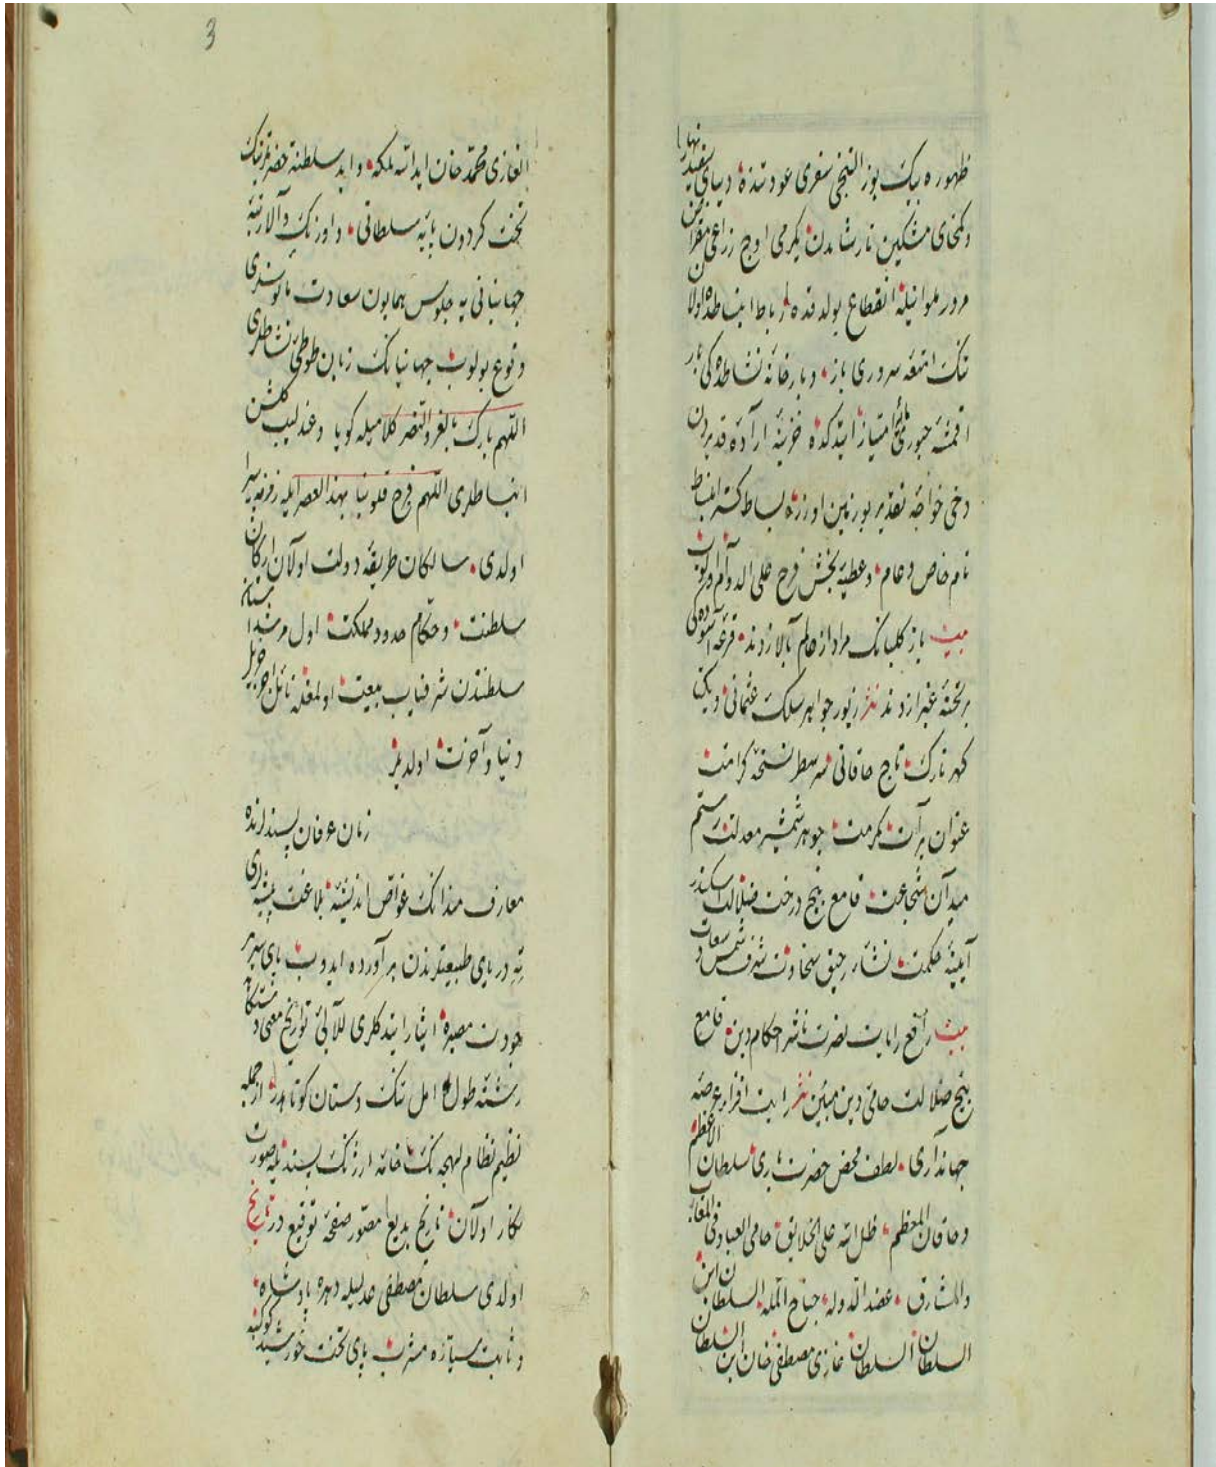 ظهوره بیك یوز التنجی سفری عودتنده دیبای سفید نهار
و کمخای مشکین تارشامدن یکرمی اوچ زراعی مقراض
مرور ملوانیله انقطاع بولدقده رباط انبساطده اولا
نك امتعه سروری باز و بارخانه نشاطده کی بار
اقمشه حبوری امتیاز ایتدکده خزینه اراده قدیردن
دخی خواجه تقدیر بو زمین اوزره بساط کستر انبساط
تام خاص و عام و عطیه بخش فرح علی الدوام اولوب
بیت باز کلبانك مراد از عالم بالا زدند قرعه آسودکی
بر تخته غبرا زدند نثر زیور جواهر سلك عثمانی و یکتا
کهر تارك تاج خاقانی سر سطر نسخه کرامت
عنوان برآت مکرمت جوهر شمشیر معدلت رستم
میدان شجاعت قامع بیخ درخت ضلالت اسکندر
آیینه حکمت نشاء رحیق سخاوت شرف شمس سعادت
بیت رافع رایات نصرت ناشر احکام دین قامع
بیخ ضلالت حامی دین مبین نثر رایت افراز عرصه
جهانداری لطف محض حضرت باری سلطان الاعظم
و خاقان المعظم ظل الله علی الخلایق حامی العباد فی المغارب
والمشارق عضد الدوله جناح المله السلطان ابن
السلطان السلطان غازی مصطفی خان ابن السلطان
الغازی محمد خان ابد الله ملکه و اید سلطنته حضرتلرینك
تخت کردون پایه سلطانی و اورنك والا رتبه
جهانبانی یه جلوس همایون سعادت مانوسلری
وقوع بولوب جهانیانك زبان طوطئ نشاطلری
اللهم بارك بالعز والنصر کلامیله کویا و عندلیب کلشن
انبساطلری اللهم فرح قلوبنا بهذا العصر ایله زمزمه سرا
اولدی سالکان طریقه دولت اولان ارکان
سلطنت و حکام حدود مملکت اول مرشد آستانه
سلطنتدن شرفیاب بیعت اولمغله نائل اجر جزیل
دنیا و آخرت اولدیلر
زمان عرفان پسندلرنده
معارف مندانك غواص اندیشه بلاغت پیشه لری
ته دریای طبیعتلرندن برآورده ایدوب پای سریر
جودت مصیره ایثار ایتدکلری لآلئ تواریخ معنی دستکاه
رشته طول امل تنك دستان کوتاهدر از جمله
نظیم نظام لهجه نك خامه ارژنك پسندیله صورت
نکار اولان تاریخ بدیع مصور صفحه توقیع در تاریخ
اولدی سلطان مصطفی عدلیله دهره پادشاه
و ثابت سیاره مشرب پای تخت خورشید کوکبه
3